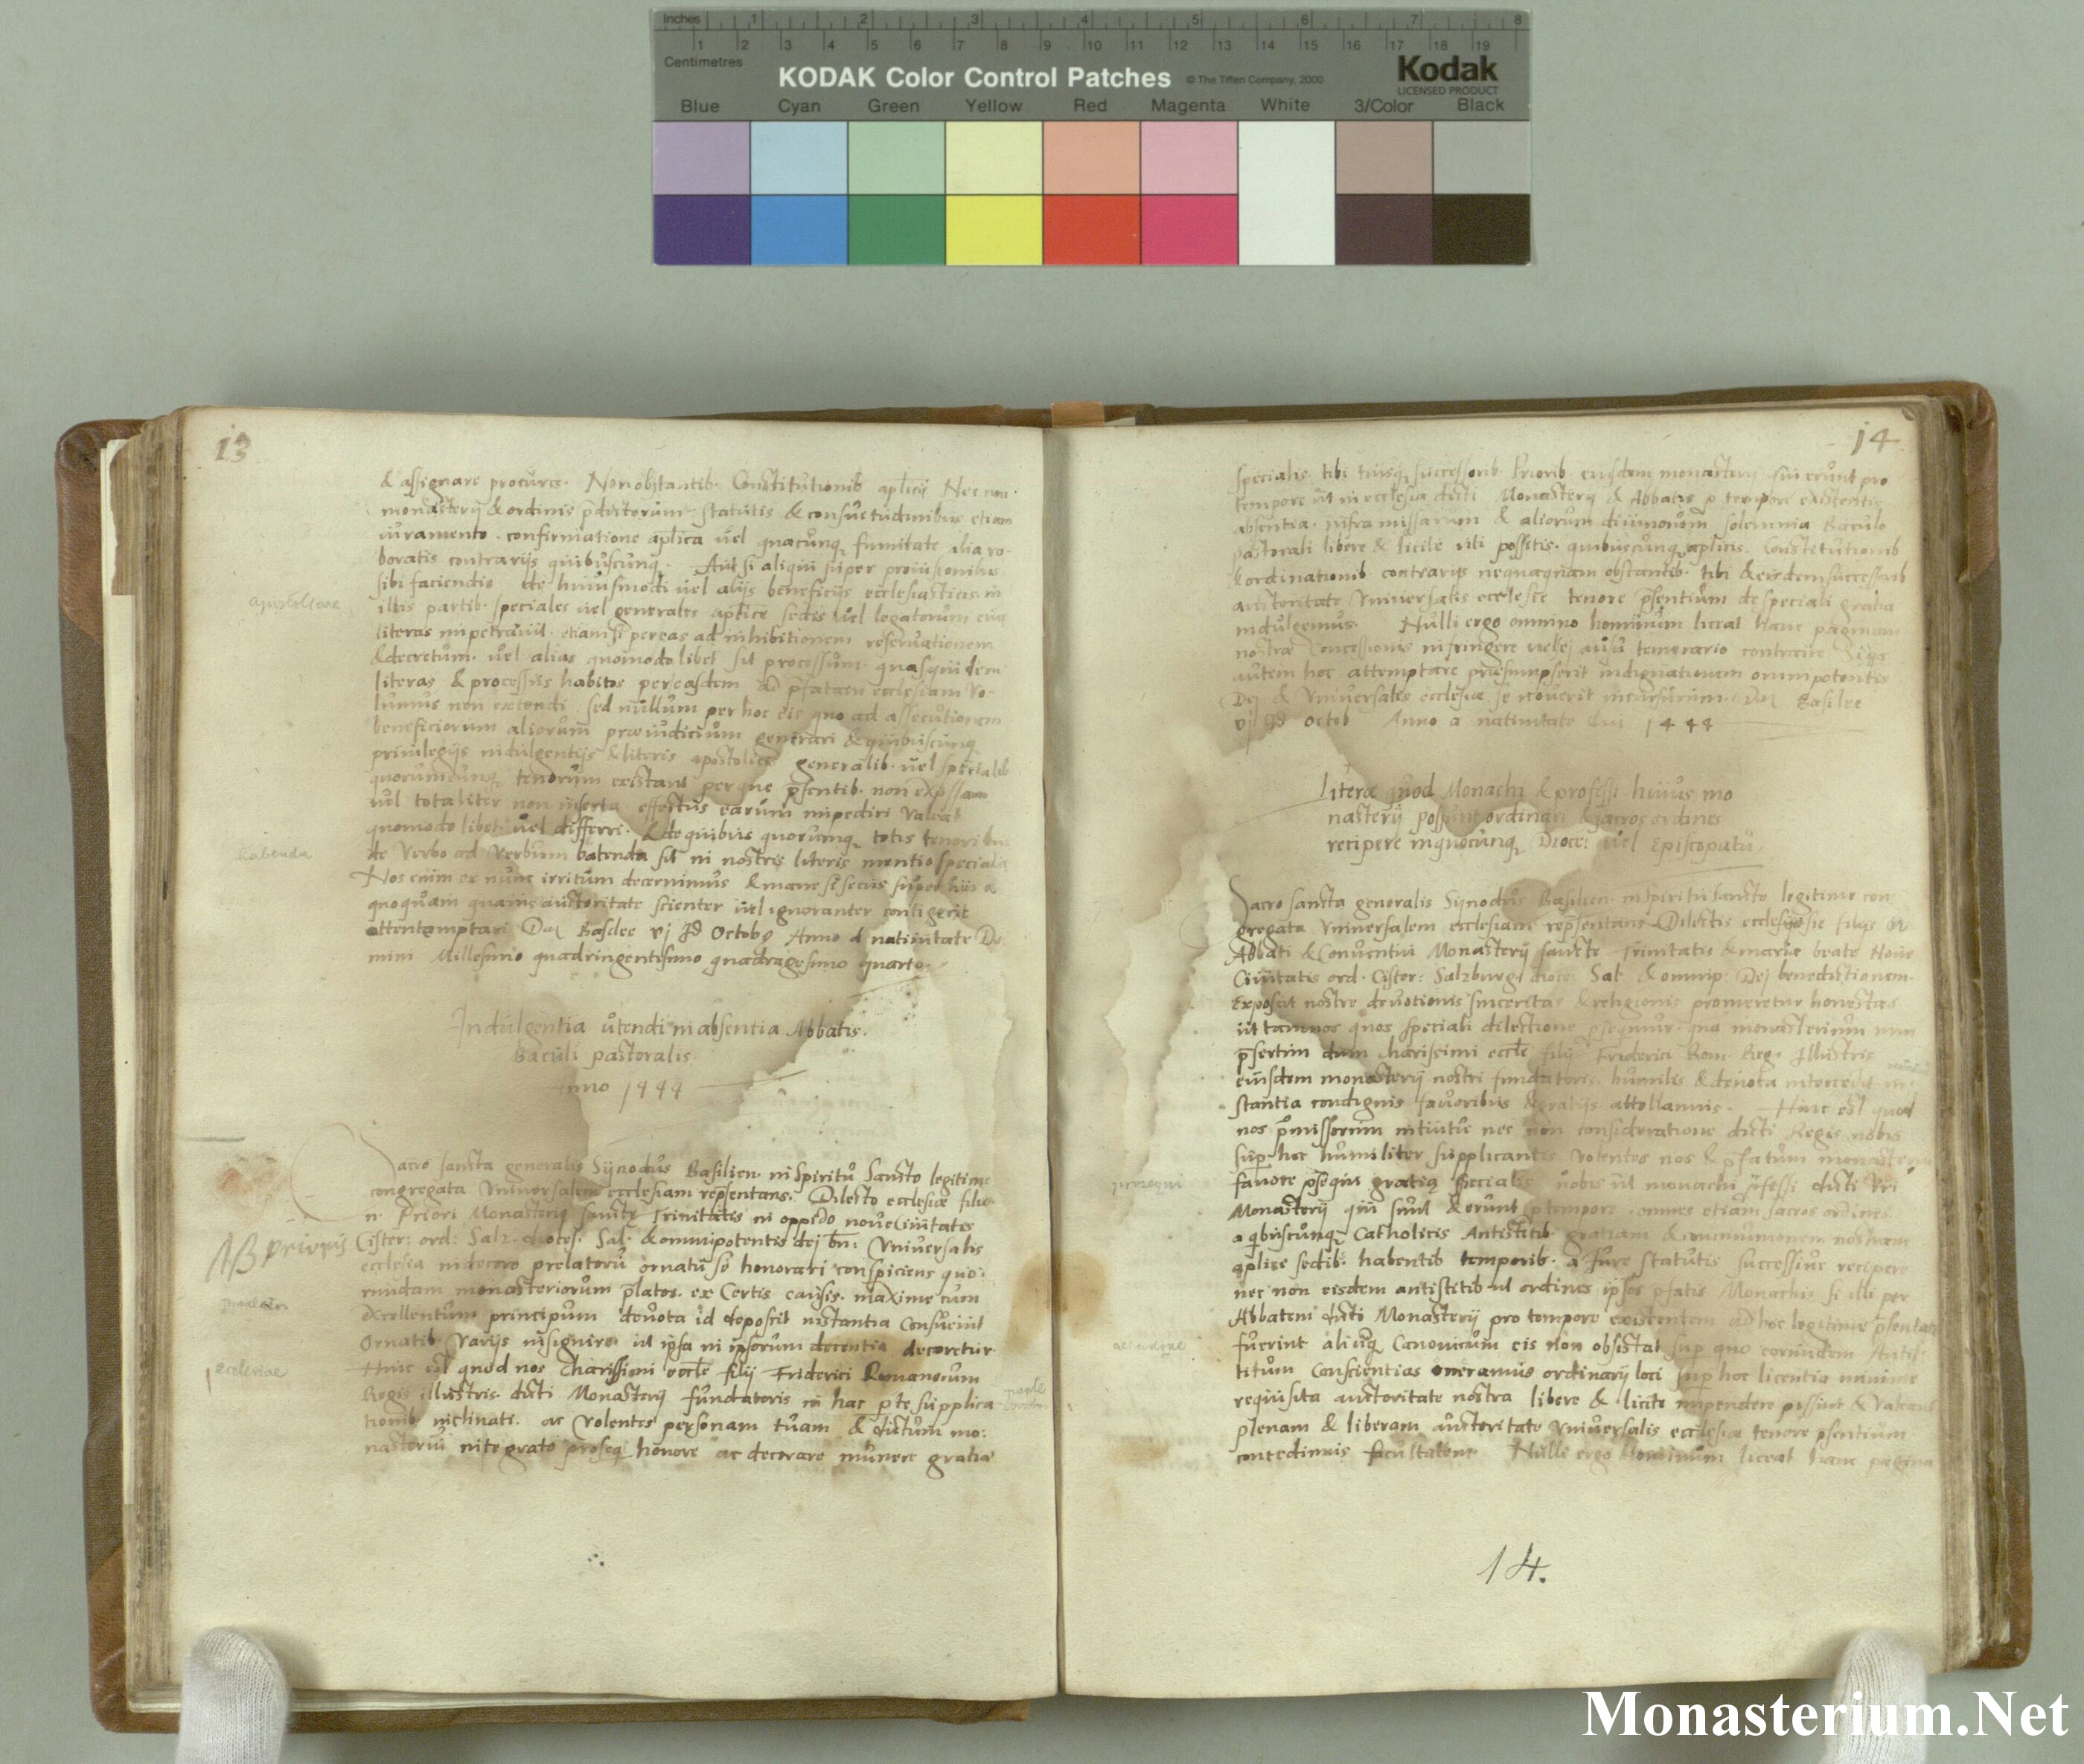 Inches 1 2 3 4 5 6 7 8
1 2 3 4 5 6 7 8 9 10 11 12 13 14 15 16 17 18 19
Centimetres
KODAK Color Control Patches © The Tiffen Company, 2000 Kodak
LICENSED PRODUCT
Blue Cyan Green Yellow Red Magenta White 3/Color Black
13
& assignare procures. Non obstantib. Constitutionib aplicis Nec non
monasterij & ordinis pdictorum statutis & consuetudinibus etiam
iuramento confirmatione aplica vel quacunq firmitate alia ro-
boratis contrarijs quibuscunq. Aut si aliqui super prouisionibus
sibi faciendis de huiusmodi vel alijs beneficijs ecclesiasticis in
apostolicae
illis partib. speciales vel generales aplice sedis vel legatorum eius
literas impetrauit. etiam si per eas ad inhibitionem reseruationem
& decretum. vel alias quomodolibet sit processum. quas quidem
literas & processus habitos per easdem ad pfatam ecclesiam vo-
lumus non extendi sed nullum per hoc eis quo ad assecutionem
beneficiorum aliorum praeiudicium generari & quibuscunq
priuilegijs indulgentijs & literis apostolicis generalib. vel specialib
quorumcunq tenorum existant per que psentib. non expssam
vel totaliter non inserta effectus earum impediri valeat
quomodolibet vel differri. & de quibus quorumq totis tenoribus
habenda
de verbo ad verbum batenda sit in nostris literis mentio specialis
Nos enim ex nunc irritum decernimus & inane si secus super hijs a
quoquam quauis auctoritate scienter vel ignoranter contigerit
attentemptari Dat Basilee vj Id Octob Anno a natiuitate Do
mini Millesimo quadringentesimo quadragesimo quarto.
Indulgentia utendi in absentia Abbatis.
Baculi pastoralis.
Anno 1444
Sacro sancta generalis Synodus Basilien. in Spiritu Sancto legitime
congregata vniuersalem ecclesiam repsentans. Dilecto ecclesiae filio
n. Priori Monasterij Sancte Trinitatis in oppido noue Ciuitatis
Cister: ord: Salz. dioces. Sal. & omnipotentis dej bn: Vniuersalis
ecclesia in decoro prelatoru ornatu se honorari conspiciens quo-
rundam monasteriorum platos. ex Certis causis. maxime cum
excellentum principum deuota id deposcit instantia Consueuit
Ornatib varijs insignire. vt ipsa in ipsorum decentia decoretur
ecclesiae
Hinc est quod nos Charissimi eccle filij Friderici Romanorum
Regis illustris. dicti Monasterij fundatoris in hac pte supplica
tionib inclinati. ac volentes personam tuam & dictum mo:
nasteriu integrato proseq honore ac decorare munere gratia
14
specialis tibi tuisq successorib. Priorib. eiusdem monasterij qui erunt pro
tempore vt in ecclesia dicti Monasterij & Abbatis p tempore existentis
absentia. infra missarum & aliorum diuinorum solemnia Baculo
pastorali libere & licite vti possitis. quibuscunq aplicis. Constitutionib
& ordinationib contrarijs nequaquam obstantib. tibi & eisdem successorib
auctoritate Vniuersalis ecclesie tenore psentium de speciali gratia
indulgemus. Nulli ergo omnino hominum liceat hanc paginam
nostrae Concessionis infringere vel ej ausu temerario contraire. Siqs
autem hoc attemptare praesumpserit indignationem omnipotentis
Dej & Vniuersales ecclesiae se nouerit incursurum. Dat Basilee
vj Id Octob Anno a natiuitate dni 1444
Literae quod Monachi & professi huius mo
nasterij possunt ordinari & sacros ordines
recipere in quocunq Dioces vel Episcopatu.
Sacro sancta generalis Synodus Basilien. in spiritu sancto legitime con
gregata vniuersalem ecclesiam representans Dilectis ecclesie filijs
Abbati & Conuentui Monasterij sancte Trinitatis & marie beate Noue
Ciuitatis ord. Cister: Salzburg dioce: Sal & omnip: Dej benedictionem.
Exposcit nostre deuotionis sinceritas & religionis promeretur honestas
vt tam vos quos speciali dilectione psequimur. qua monasterium vrm
psertim dum charissimi eccle filij Friderici Rom. Reg. Illustris
eiusdem monasterij nostri fundatoris. humilis & deuota intercedit in
stantia condignis fauoribus & gratijs attollamus. Hinc est quod
nos pmissorum intuitu nec non consideratione dicti Regis nobis
sup hoc humiliter supplicantis volentes vos & pfatum monasterium
fauore pseqvi gratiq specialis vobis vt monachi pfessi dicti vri
Monasterij qui sunt & erunt p tempore. omnes etiam sacros ordines
a qbuscunq Catholicis Antistitib gratiam & communionem nostram
aplice sedib. habentib temporib. a Jure statutis successiue recipere
nec non eisdem antistitib vt ordines ipsos pfatis Monachis si illi per
Abbatem dicti Monasterij pro tempore existentem ad hoc legitime psentati
fuerint aliudq Canonicum eis non obsistat sup quo eorundem Antis-
titum Conscientias oneramus ordinarij loci sup hoc licentia minime
requisita auctoritate nostra libere & licite impendere possint & valeant
plenam & liberam auctoritate vniuersalis ecclesiae tenore psentium
concedimus facultatem. Nulli ergo hominum liceat hanc pagina
14.
Monasterium.Net